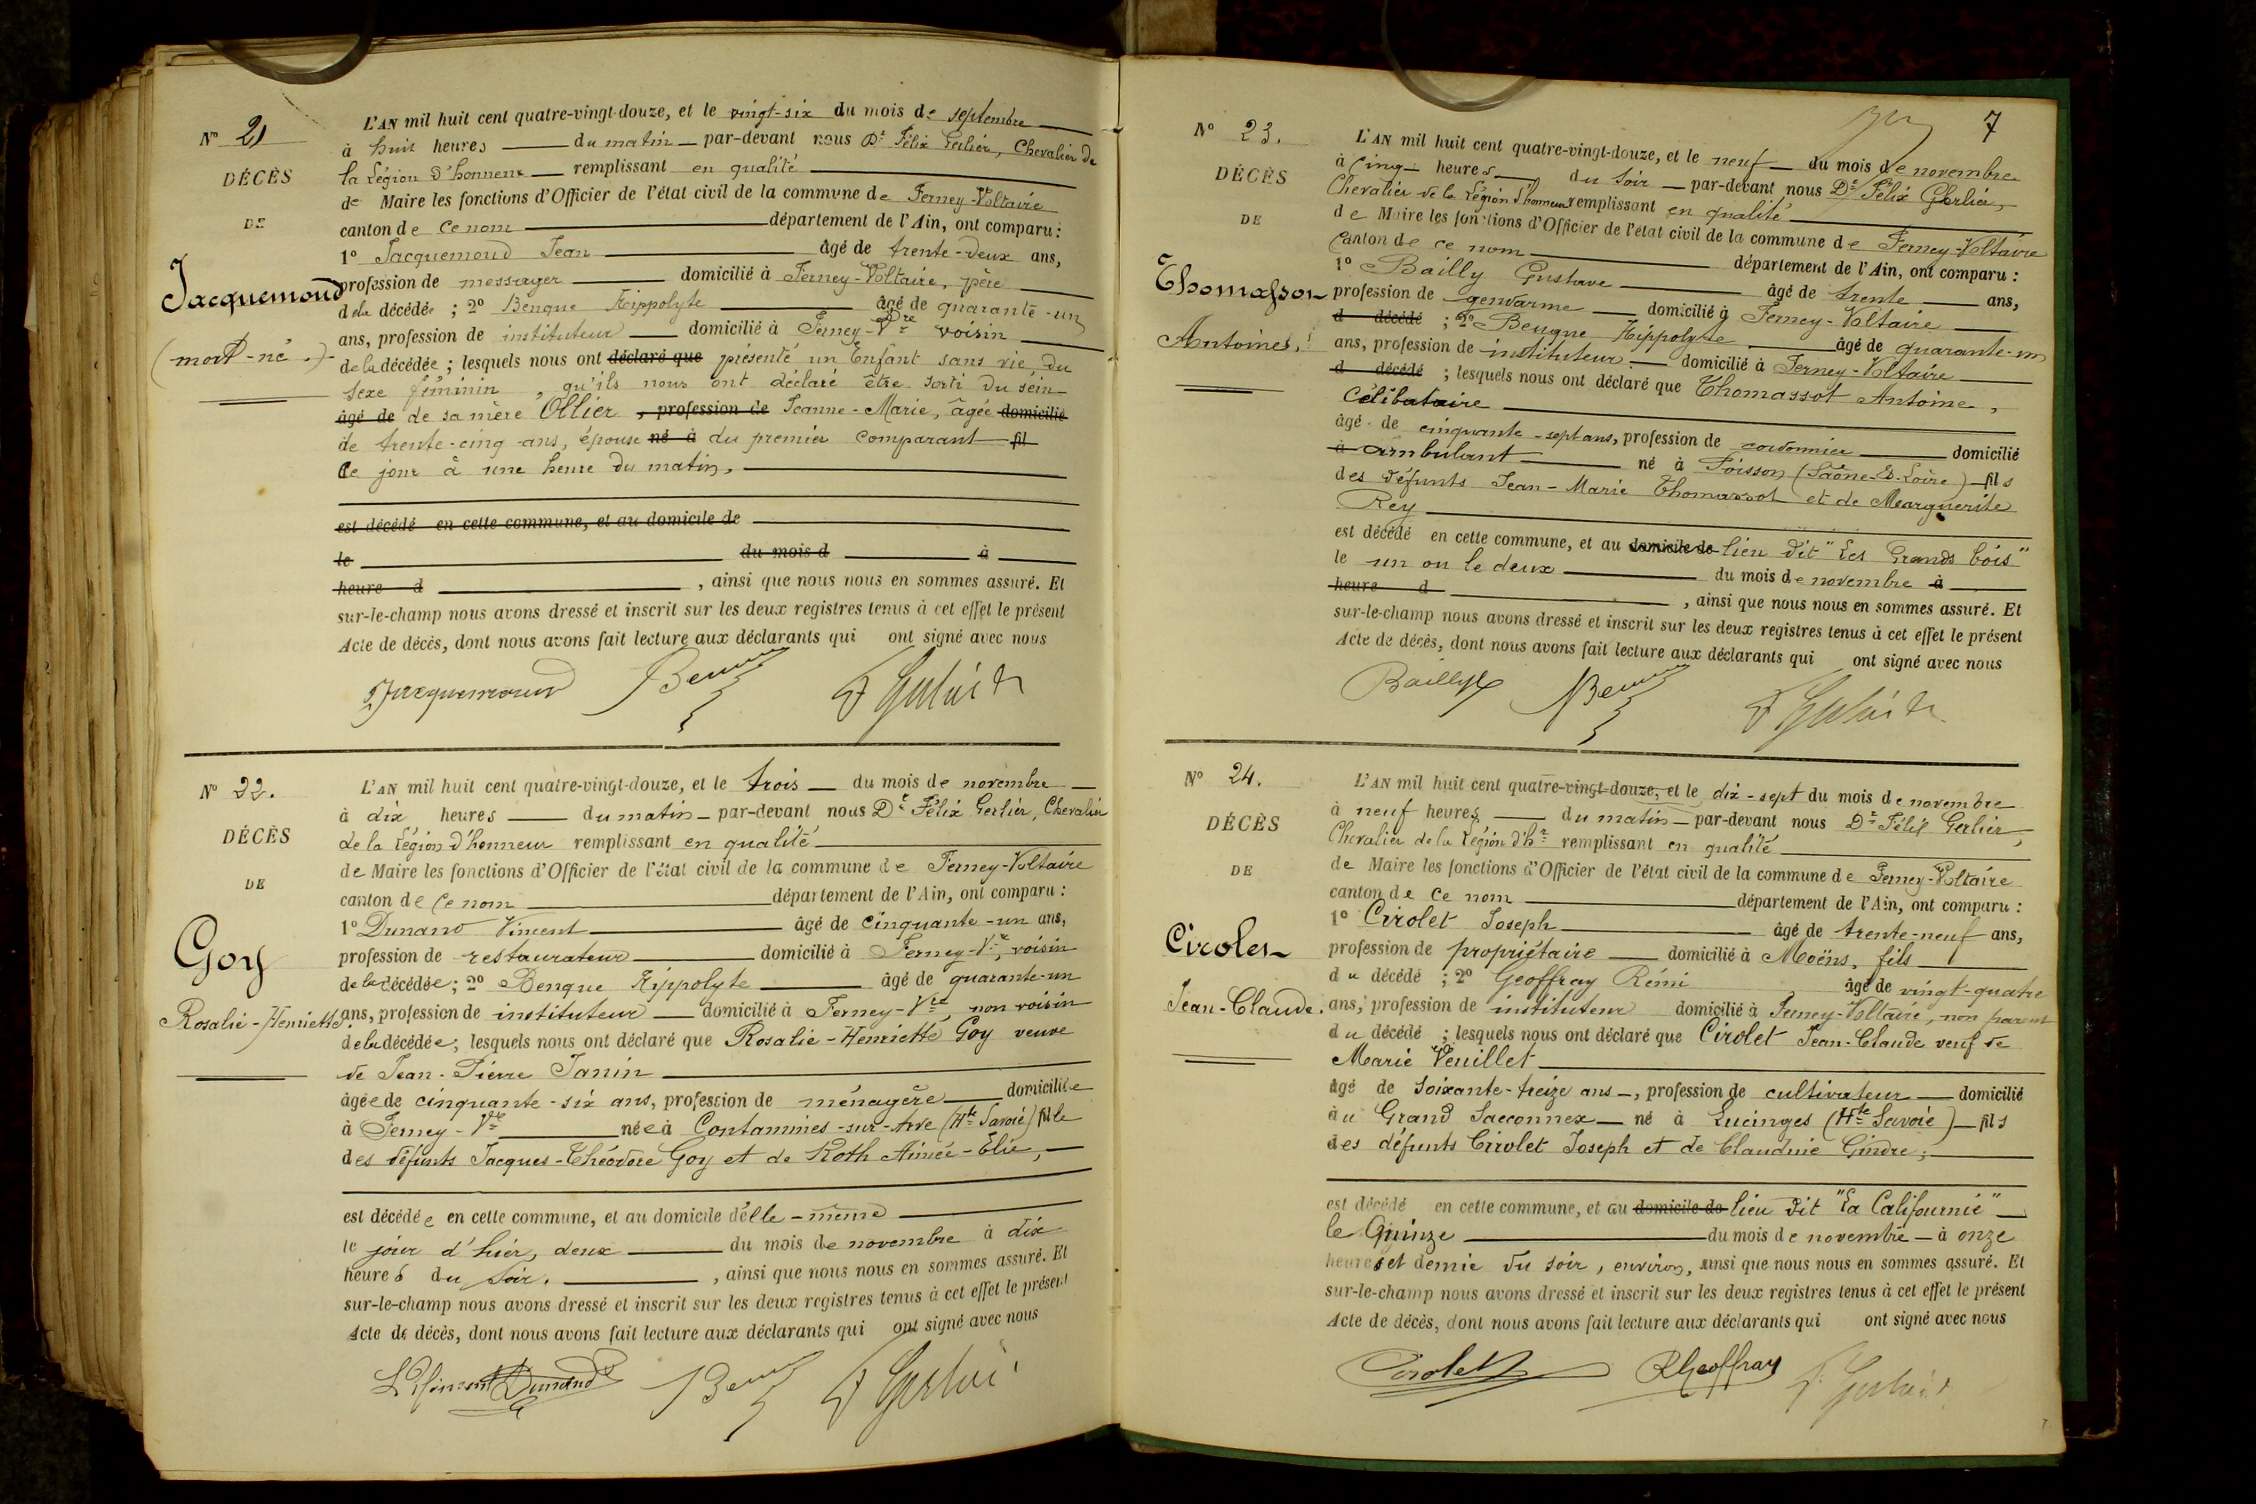 Nº 21
DÉCÈS
DE
Jacquemoud
(mort-né.)
L'AN mil huit cent quatre-vingt-douze, et le vingt-six du mois de septembre
à huit heures du matin par-devant nous Dr Félix Gerlier, Chevalier de
la Légion d'honneur remplissant en qualité
de Maire les fonctions d'Officier de l'état civil de la commune de Ferney-Voltaire
canton de ce nom département de l'Ain, ont comparu :
1º Jacquemoud Jean âgé de trente-deux ans,
profession de messager domicilié à Ferney-Voltaire, père
de la décédée ; 2º Benque Hippolyte âgé de quarante-un
ans, profession de instituteur domicilié à Ferney-Vre voisin
de la décédée ; lesquels nous ont déclaré que présenté un Enfant sans vie, du
sexe féminin, qu'ils nous ont déclaré être sorti du sein
âgé de de sa mère Ollier , profession de Jeanne-Marie, âgée domicilié
de trente-cinq ans, épouse né à du premier comparant fil
Ce jour à une heure du matin,
est décédé en cette commune, et au domicile de
le du mois d à
heure d , ainsi que nous nous en sommes assuré. Et
sur-le-champ nous avons dressé et inscrit sur les deux registres tenus à cet effet le présent
Acte de décès, dont nous avons fait lecture aux déclarants qui ont signé avec nous
Jacquemoud F Gerlier
Nº 22.
DÉCÈS
DE
Goy
Rosalie-Henriette.
L'AN mil huit cent quatre-vingt-douze, et le trois du mois de novembre
à dix heures du matin par-devant nous Dr Félix Gerlier, Chevalier
de la Légion d'honneur remplissant en qualité
de Maire les fonctions d'Officier de l'état civil de la commune de Ferney-Voltaire
canton de ce nom département de l'Ain, ont comparu :
1º Dunand Vincent âgé de cinquante-un ans,
profession de restaurateur domicilié à Ferney-Vre, voisin
de la décédée ; 2º Benque Hippolyte âgé de quarante-un
ans, profession de instituteur domicilié à Ferney-Vre, non voisin
de la décédée ; lesquels nous ont déclaré que Rosalie-Henriette Goy veuve
de Jean-Pierre Janin
âgée de cinquante-six ans, profession de ménagère domiciliée
à Ferney-Vre née à Contamines-sur-Arve (Hte Savoie) fille
des défunts Jacques-Théodore Goy et de Roth Aimée-Elie,
est décédée en cette commune, et au domicile d'elle-même
le jour d'hier, deux du mois de novembre à dix
heures du soir. , ainsi que nous nous en sommes assuré. Et
sur-le-champ nous avons dressé et inscrit sur les deux registres tenus à cet effet le présent
Acte de décès, dont nous avons fait lecture aux déclarants qui ont signé avec nous
Dunand F Gerlier
7
Nº 23.
DÉCÈS
DE
Thomasson
Antoine.
L'AN mil huit cent quatre-vingt-douze, et le neuf du mois de novembre
à cinq heures du soir par-devant nous Dr Félix Gerlier,
Chevalier de la Légion d'honneur remplissant en qualité
de Maire les fonctions d'Officier de l'état civil de la commune de Ferney-Voltaire
canton de ce nom département de l'Ain, ont comparu :
1º Bailly Gustave âgé de trente ans,
profession de gendarme domicilié à Ferney-Voltaire
d décédé ; 2º Benque Hippolyte âgé de quarante-un
ans, profession de instituteur domicilié à Ferney-Voltaire
d décédé ; lesquels nous ont déclaré que Thomassot Antoine,
Célibataire
âgé de cinquante-sept ans, profession de cordonnier domicilié
à ambulant né à Poisson (Saône-et-Loire) fils
des défunts Jean-Marie Thomassot et de Marguerite
Rey
est décédé en cette commune, et au domicile de lieu dit "Les Grands bois"
le un ou le deux du mois de novembre à
heure d , ainsi que nous nous en sommes assuré. Et
sur-le-champ nous avons dressé et inscrit sur les deux registres tenus à cet effet le présent
Acte de décès, dont nous avons fait lecture aux déclarants qui ont signé avec nous
Bailly F Gerlier
Nº 24.
DÉCÈS
DE
Cirolet
Jean-Claude.
L'AN mil huit cent quatre-vingt-douze, et le dix-sept du mois de novembre
à neuf heures du matin par-devant nous Dr Félix Gerlier,
Chevalier de la Légion d'hr remplissant en qualité
de Maire les fonctions d'Officier de l'état civil de la commune de Ferney-Voltaire
canton de ce nom département de l'Ain, ont comparu :
1º Cirolet Joseph âgé de trente-neuf ans,
profession de propriétaire domicilié à Moëns, fils
du décédé ; 2º Geoffray Rémi âgé de vingt-quatre
ans, profession de instituteur domicilié à Ferney-Voltaire, non parent
du décédé ; lesquels nous ont déclaré que Cirolet Jean-Claude veuf de
Marie Veuillet
âgé de soixante-treize ans, profession de cultivateur domicilié
au Grand Saconnex né à Lucinges (Hte Savoie) fils
des défunts Cirolet Joseph et de Claudine Gindre ;
est décédé en cette commune, et au domicile de lieu dit "La Californie"
le Quinze du mois de novembre à onze
heures et demie du soir, environ, ainsi que nous nous en sommes assuré. Et
sur-le-champ nous avons dressé et inscrit sur les deux registres tenus à cet effet le présent
Acte de décès, dont nous avons fait lecture aux déclarants qui ont signé avec nous
Cirolet RGeoffray F. Gerlier